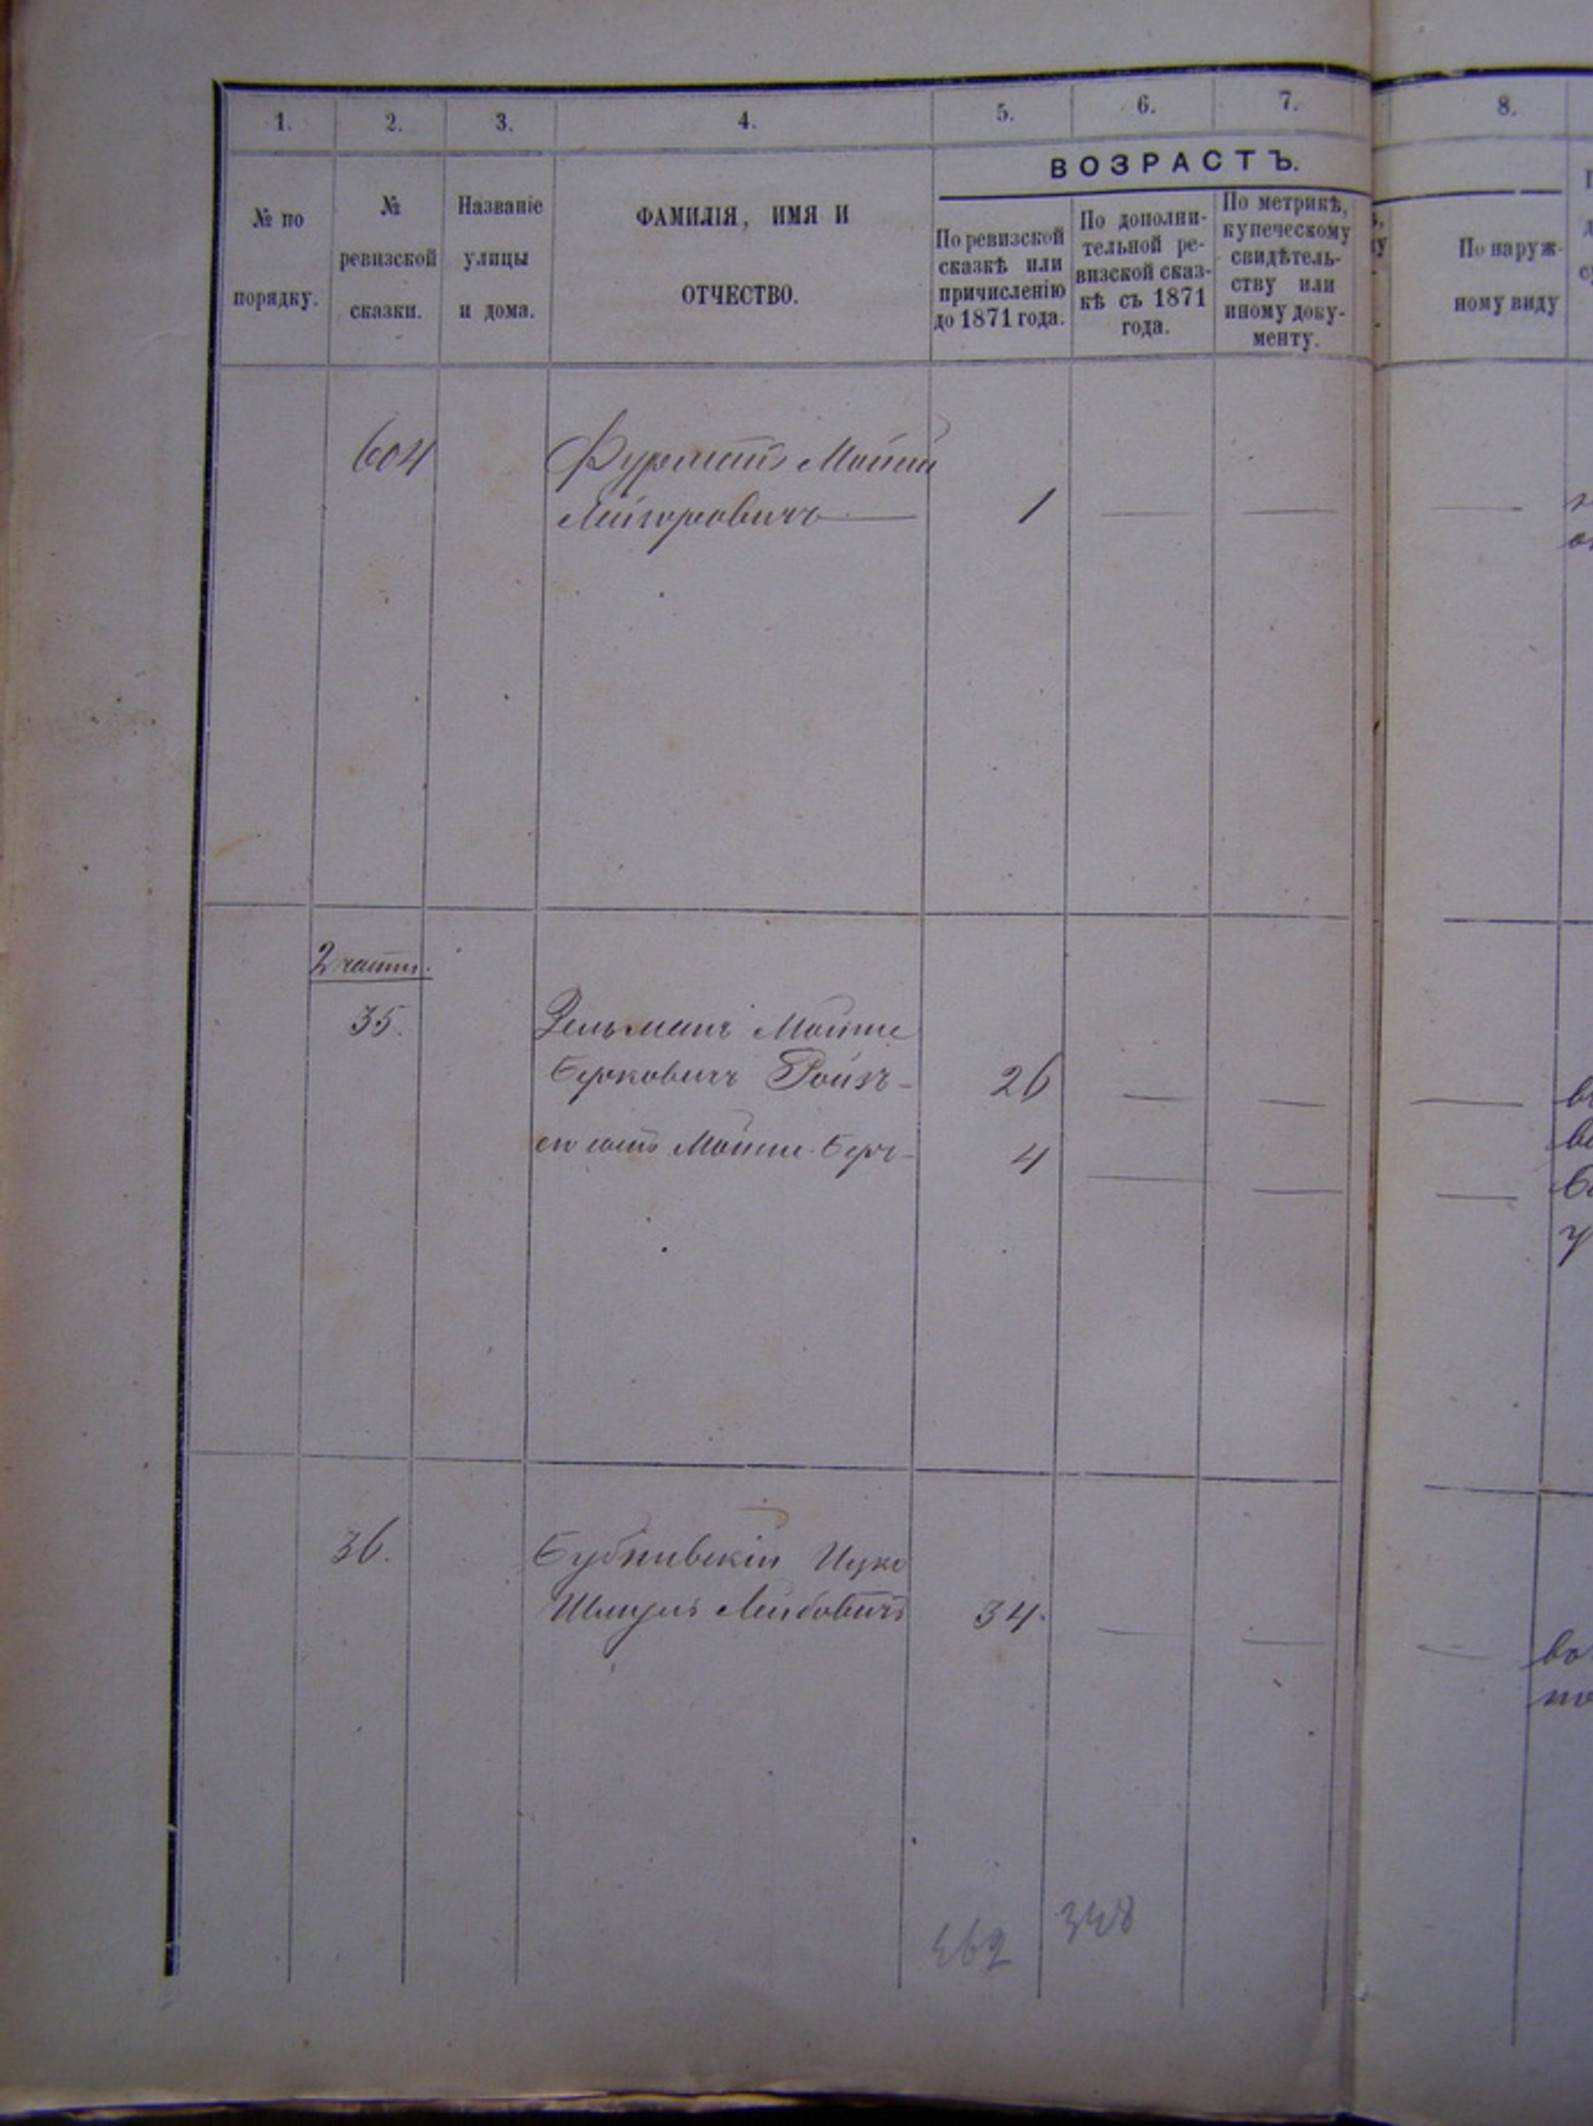 1. 2. 3. 4. 5. 6. 7. 8.
ВОЗРАСТЪ.
№ по
порядку.
№
ревизской
сказки.
Названіе
улицы
и дома.
ФАМИЛІЯ, ИМЯ И
ОТЧЕСТВО.
По ревизской
сказкѣ или
причисленію
до 1871 года.
По дополни-
тельной ре-
визской сказ-
кѣ съ 1871
года.
По метрикѣ,
купеческому
свидѣтель-
ству или
иному доку-
менту.
По наруж-
ному виду
604 Фурманъ
1 — — —
2 части.
35. Зельманъ Мошке
Берковичъ 26 — — —
Мошке Беръ- 4 — — —
36. Ицко
Шмуль Лейбовичъ 34. — — —
348